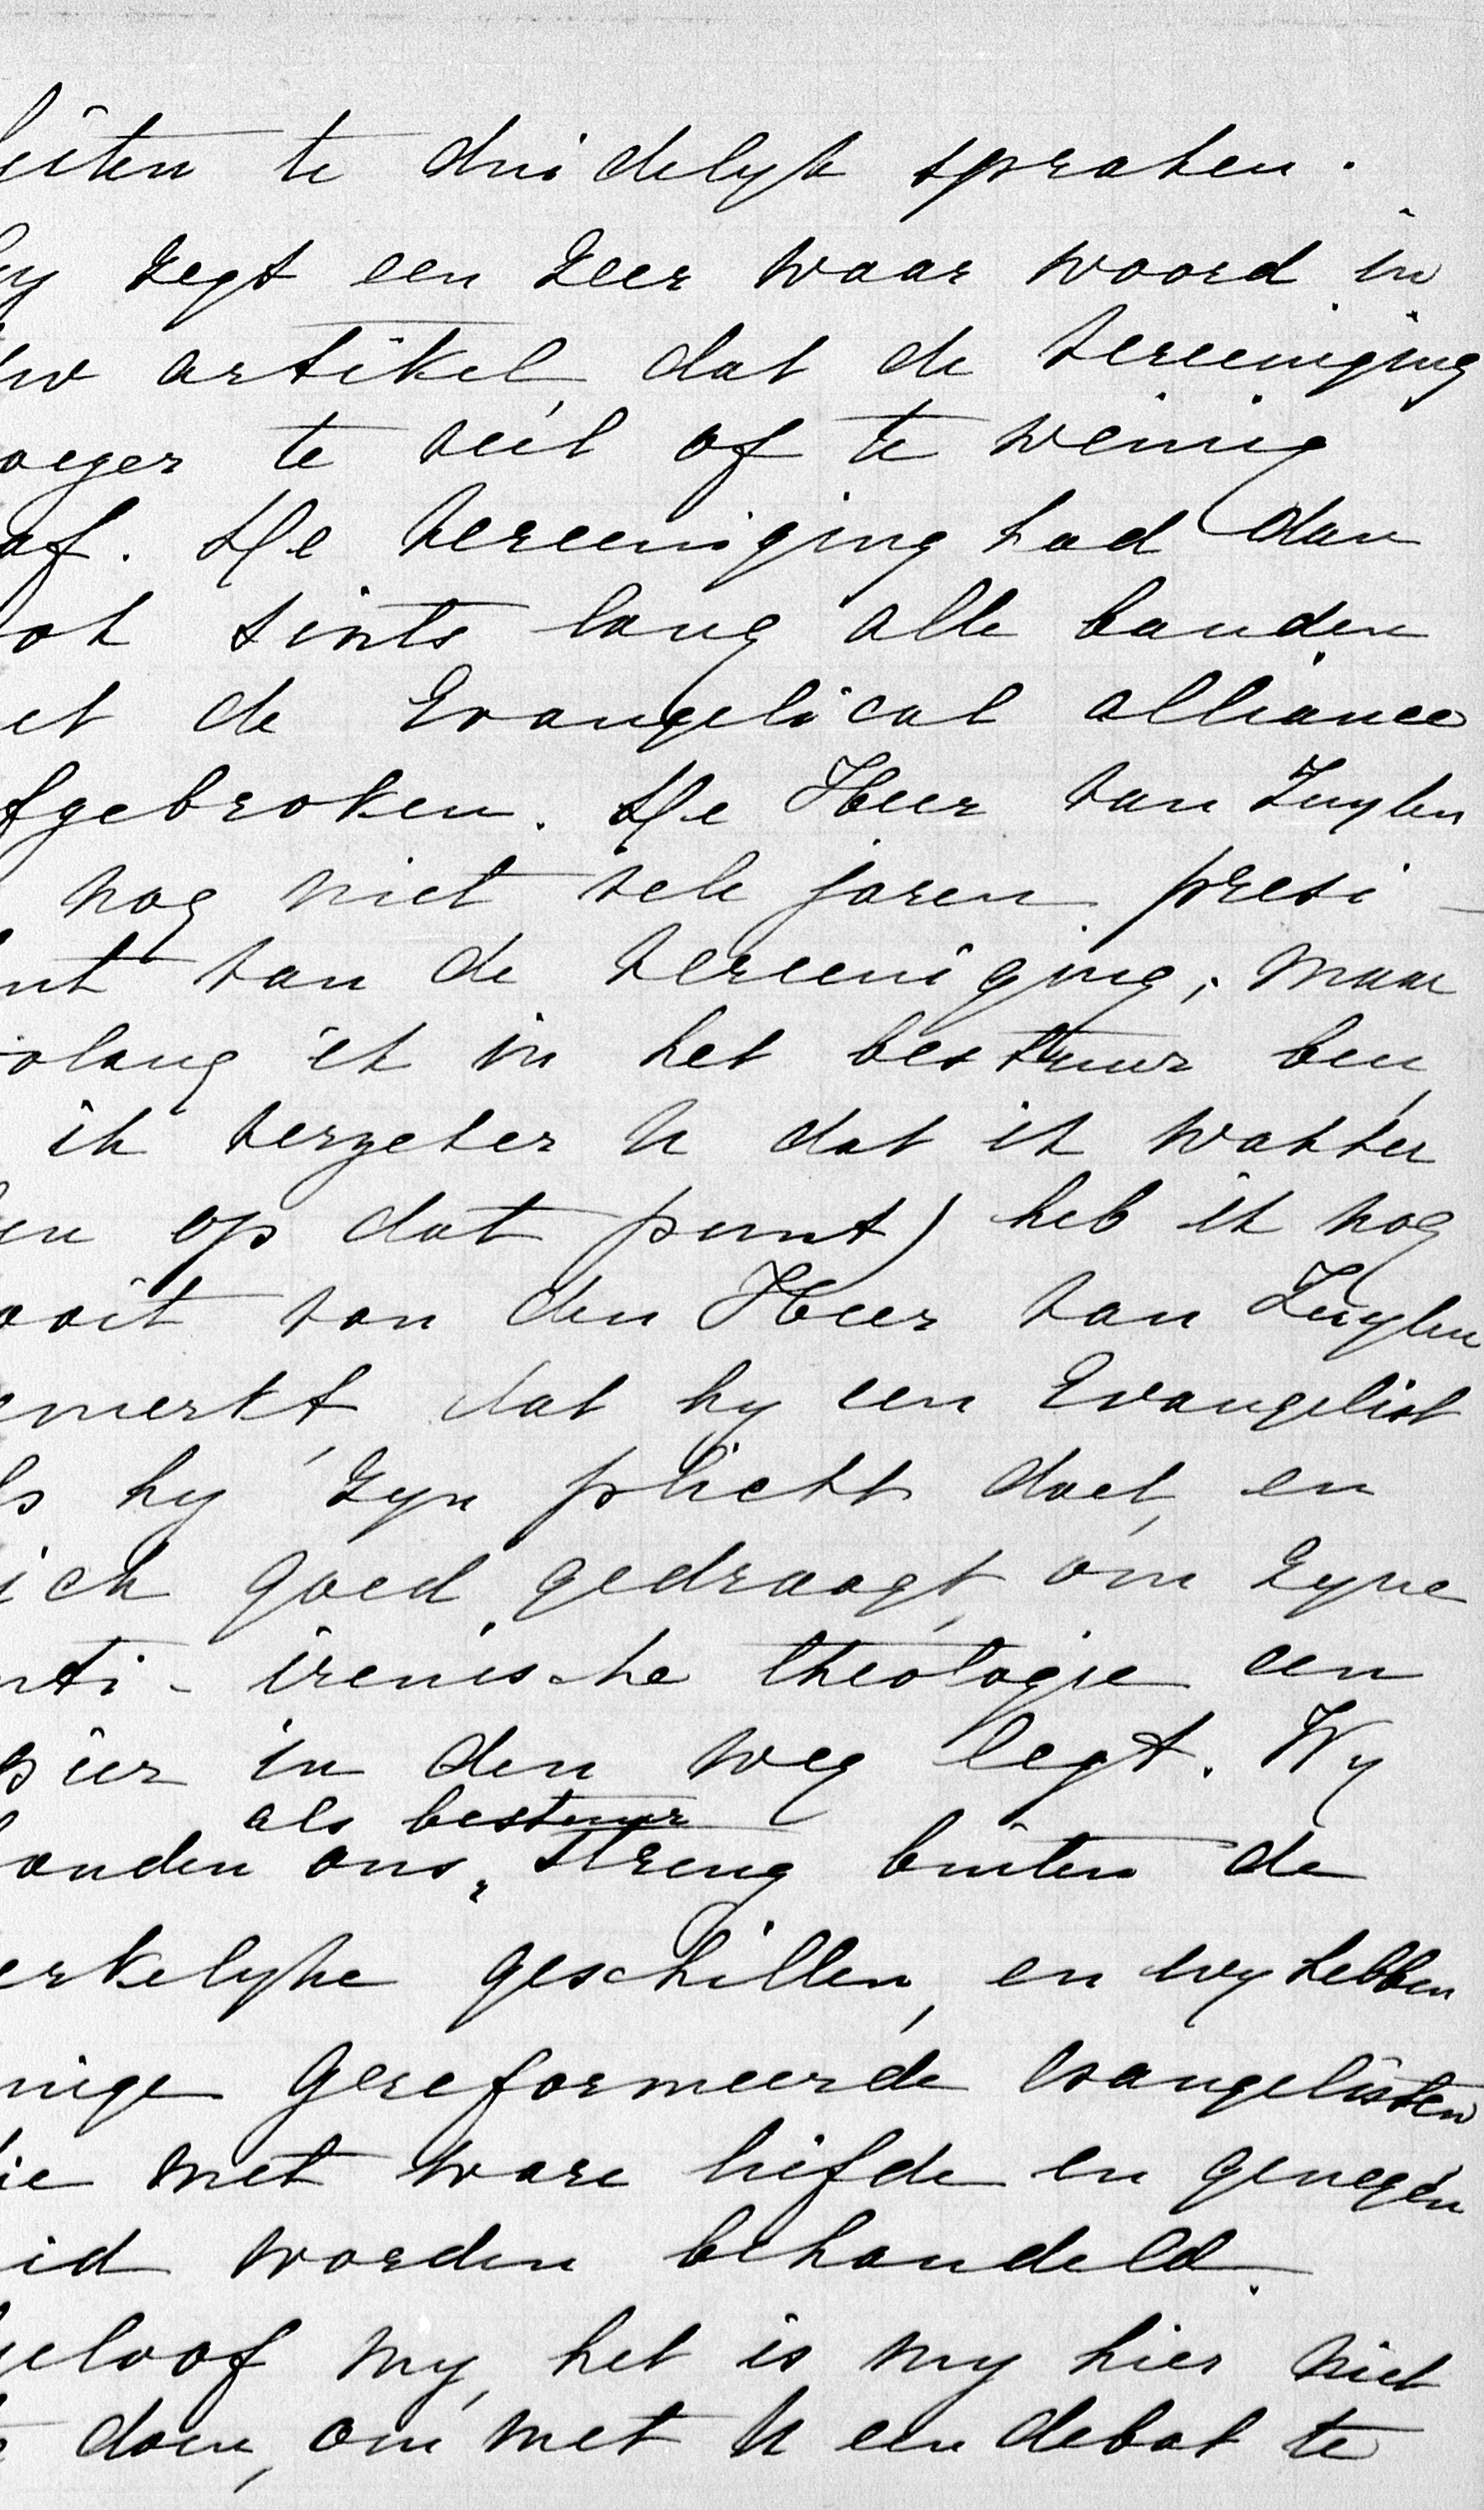 feiten te duidelyk spraken.
Gy zegt een zeer waar woord in
uw artikel, dat de vereeniging
vroeger te veel of te weinig
gaf. De vereeniging had dan
ook sints lang alle banden
met de Evangelical alliance
afgebroken. De Heer van Zuylen
nog niet vele jaren presi-
dent van de vereeniging; maar
zolang ik in het bestuur ben,
ik verzeker U dat ik wakker
ben op dat punt) heb ik nog
nooit van den Heer van Zuylen
gemerkt, dat hy een Evangelist
als hy zyn plicht doet, en
zich goed gedraagt, om zyne
anti-irenische theologie een
in den weg legt. Wy
houden ons als bestuur streng buiten de
kerkelyke geschillen, en wy hebben
eenige Gereformeerde evangelisten
die met ware liefde en genegen
heid worden behandeld.
Geloof my, het is my hier niet
te doen, om met U een debat te